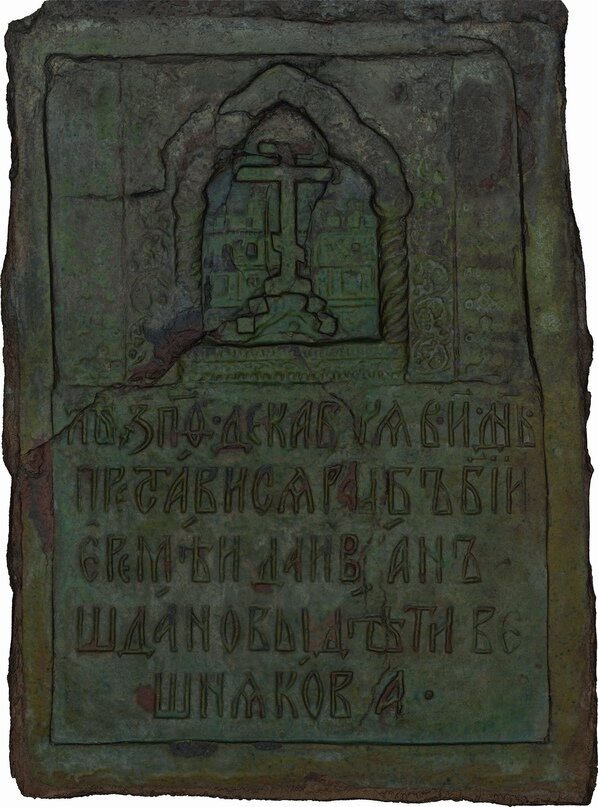 ЛѢ ЗПѲ · ДЕКАБРѦ В · И · ДНЬ
ПРЕСТАВИСѦ РАБЪ БІИ
ЄРЕМѢИ ДА ИВАНЪ
ШДАНОВЫ ДѢТИ ВЄ
ШНѦКОВА ·